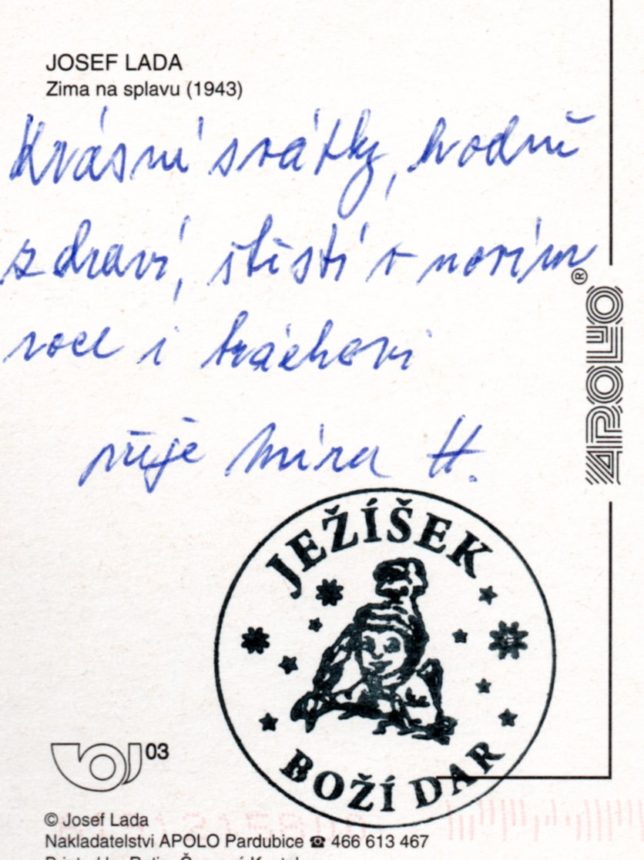 JOSEF LADA
Zima na splavu (1943)
Krásné svátky, hodně
zdraví, štěstí v novém
roce i
přeje Míra H.
APOLO®
JEŽÍŠEK
BOŽÍ DAR
03
© Josef Lada
Nakladatelství APOLO Pardubice ☎ 466 613 467